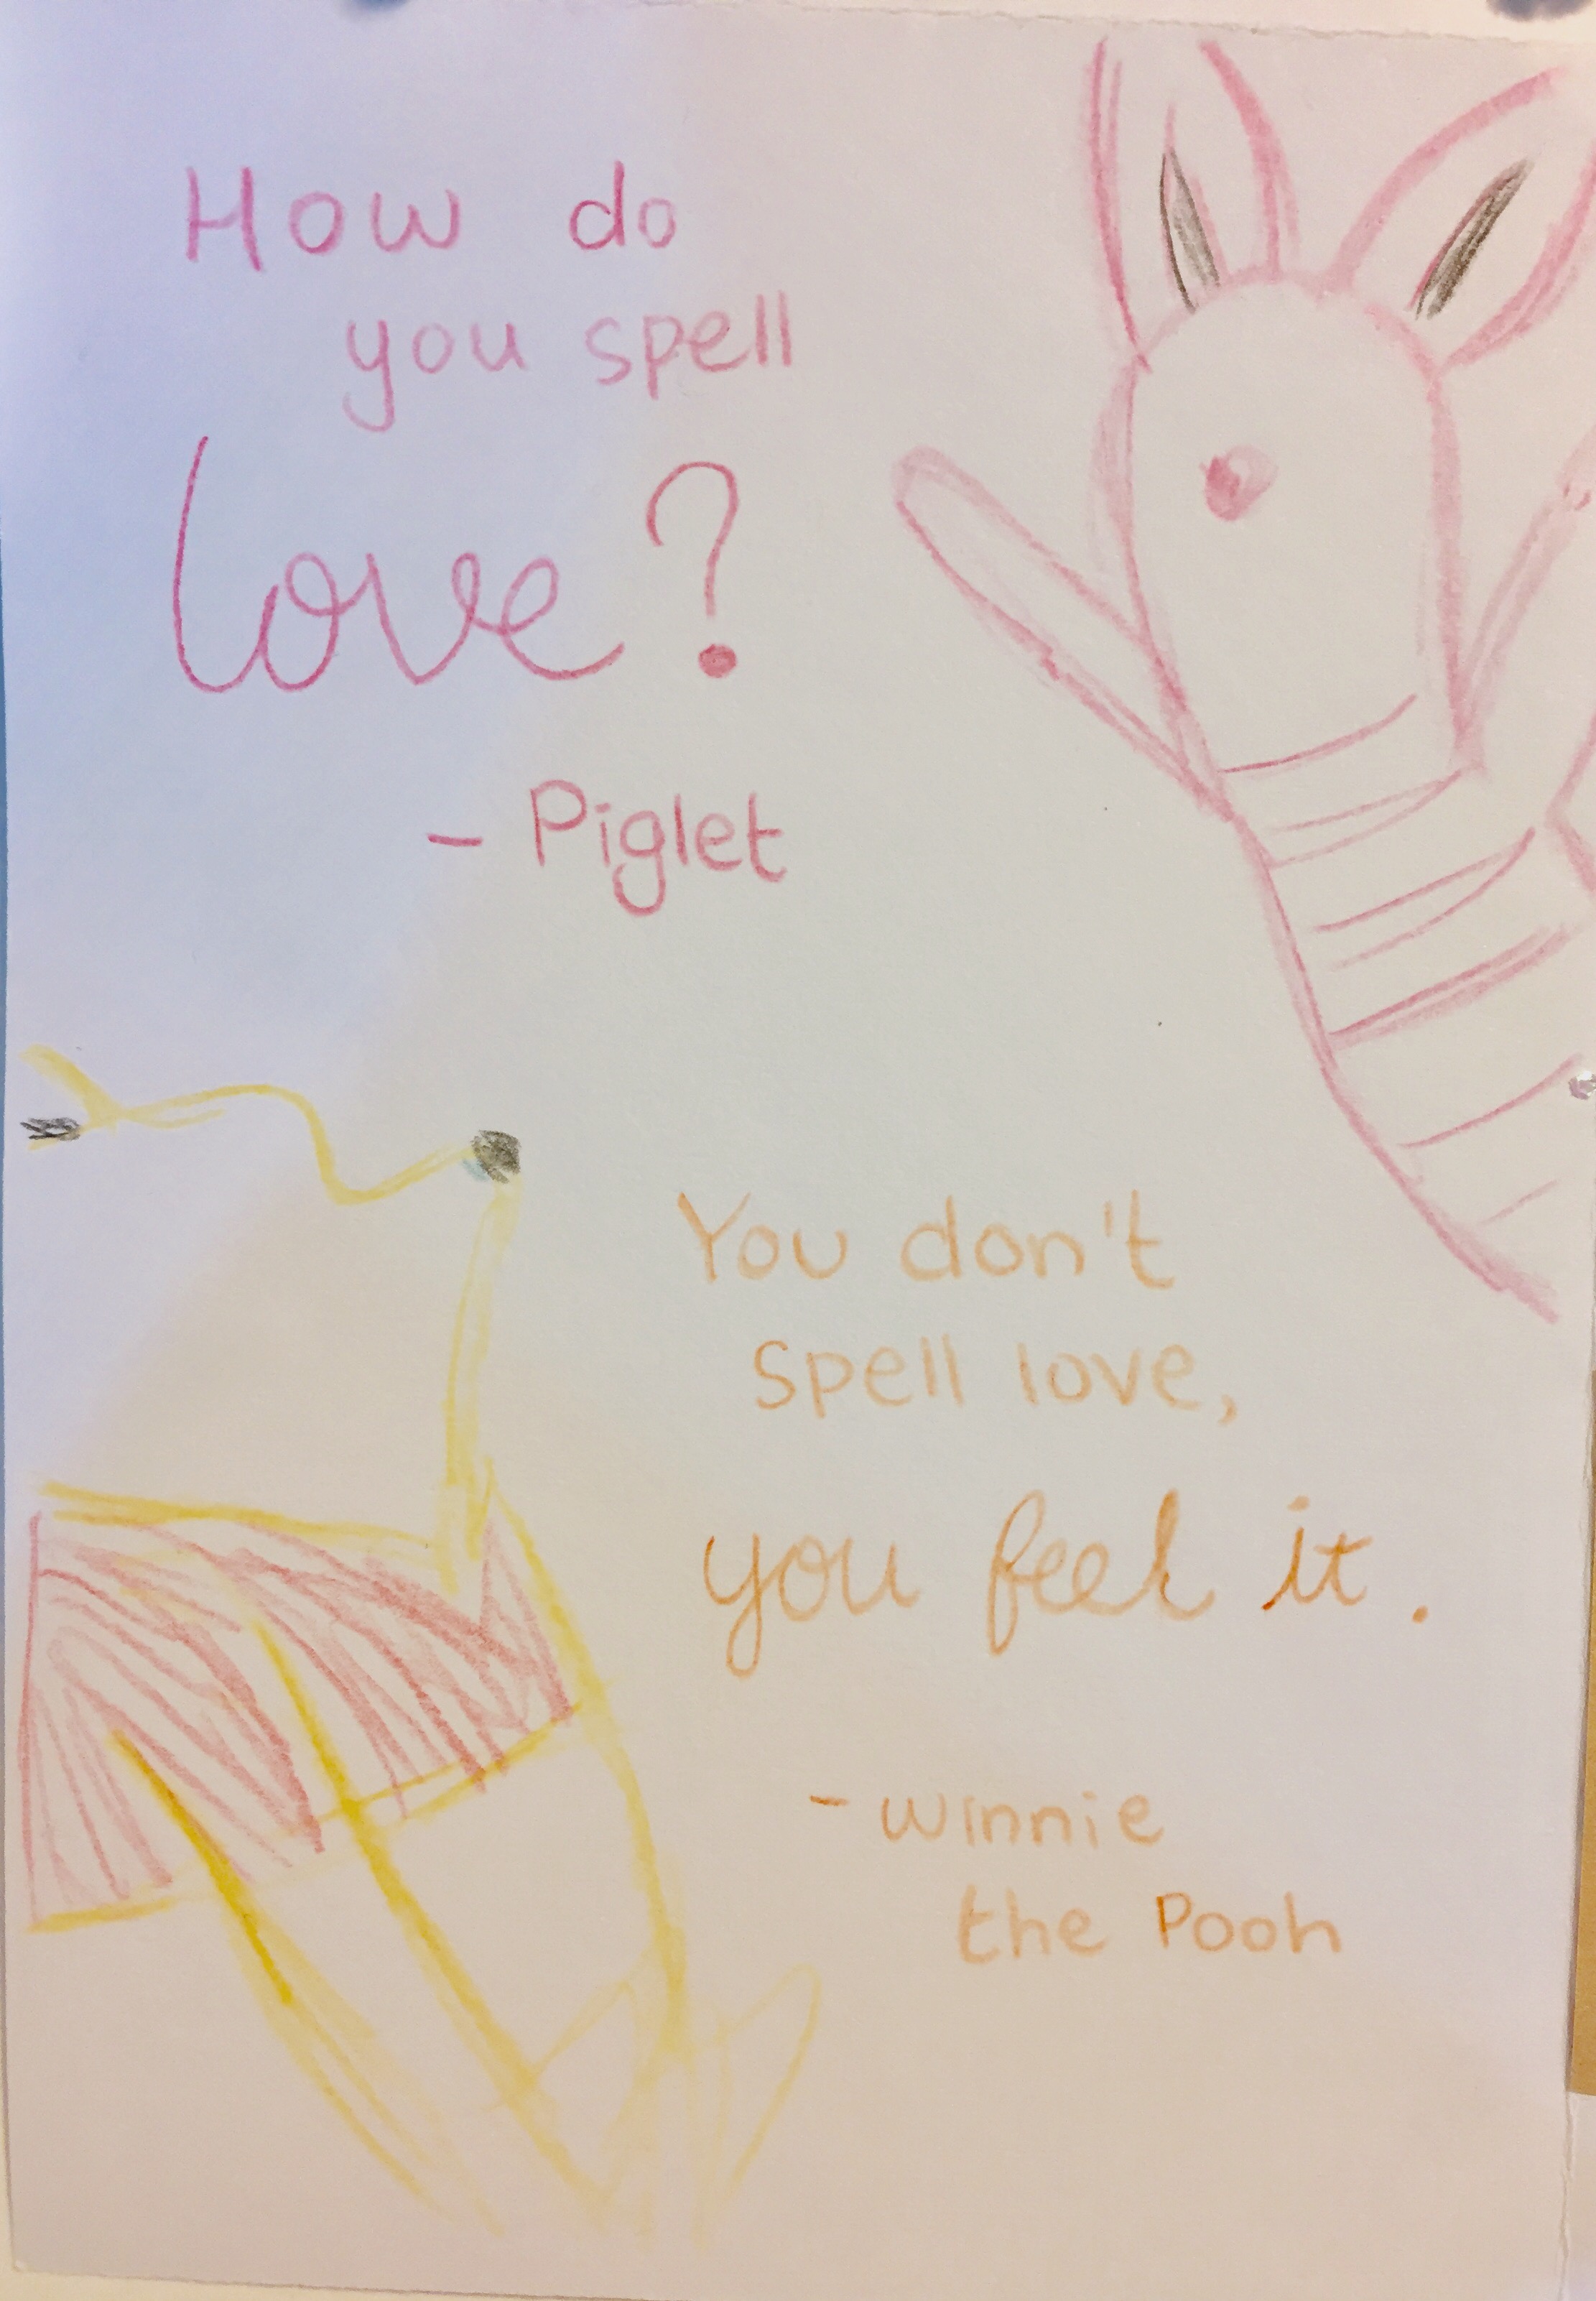 How do
you spell
love?
- Piglet
You don't
spell love,
you feel it.
- winnie
the Pooh